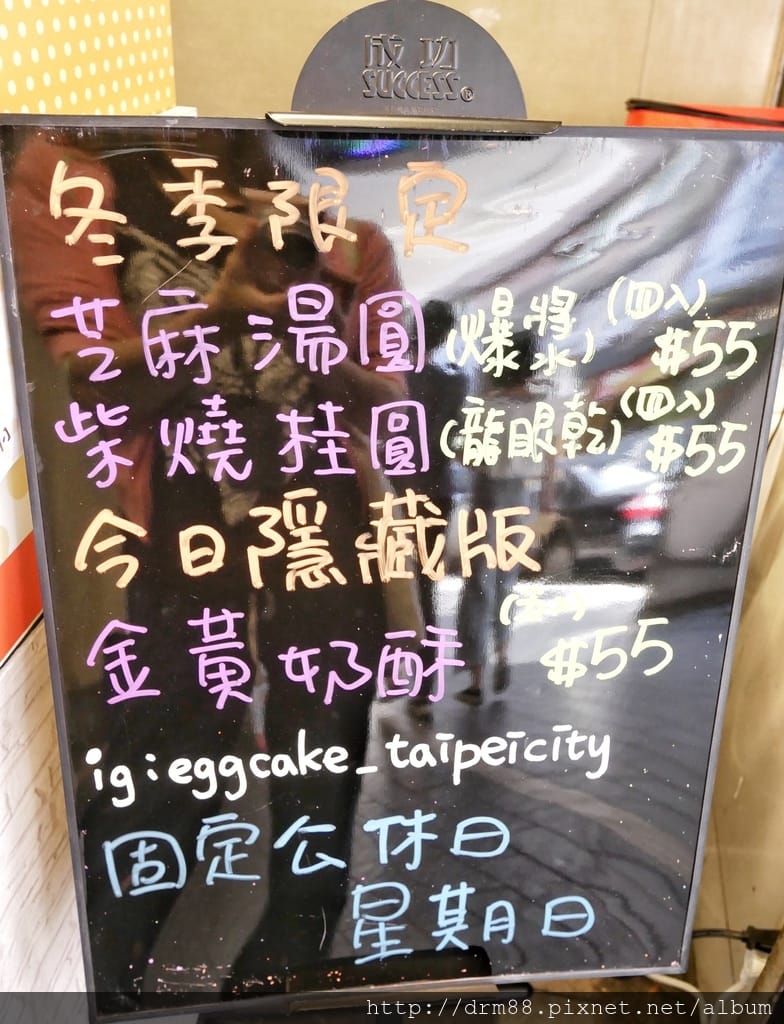 成功
SUCCESS®
冬季限定
芝麻湯圓(爆將水)(四入)$55
柴燒桂圓(龍眼乾)(四入)$55
今日隱藏版
金黃奶酥 $55
ig:eggcake_taipeicity
固定公休日
星期日
http://drm88.pixnet.net/album